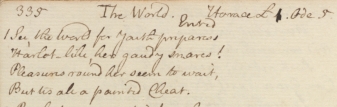 335 The World. Horace L 1. Ode 5
Entd
1. In the world for Youth prepares
Harlot like her gaudy snares!
Pleasures round her seem to wait,
But tis all a painted Cheat.